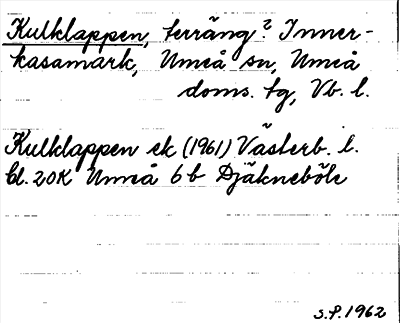 Kulklappen, terräng? Inner-
kasamark, Umeå sn, Umeå
doms. tg, Vb. l.
Kulklappen ek (1961) Västerb. l.
bl. 20K Umeå 6b Djäkneböle
S.P. 1962